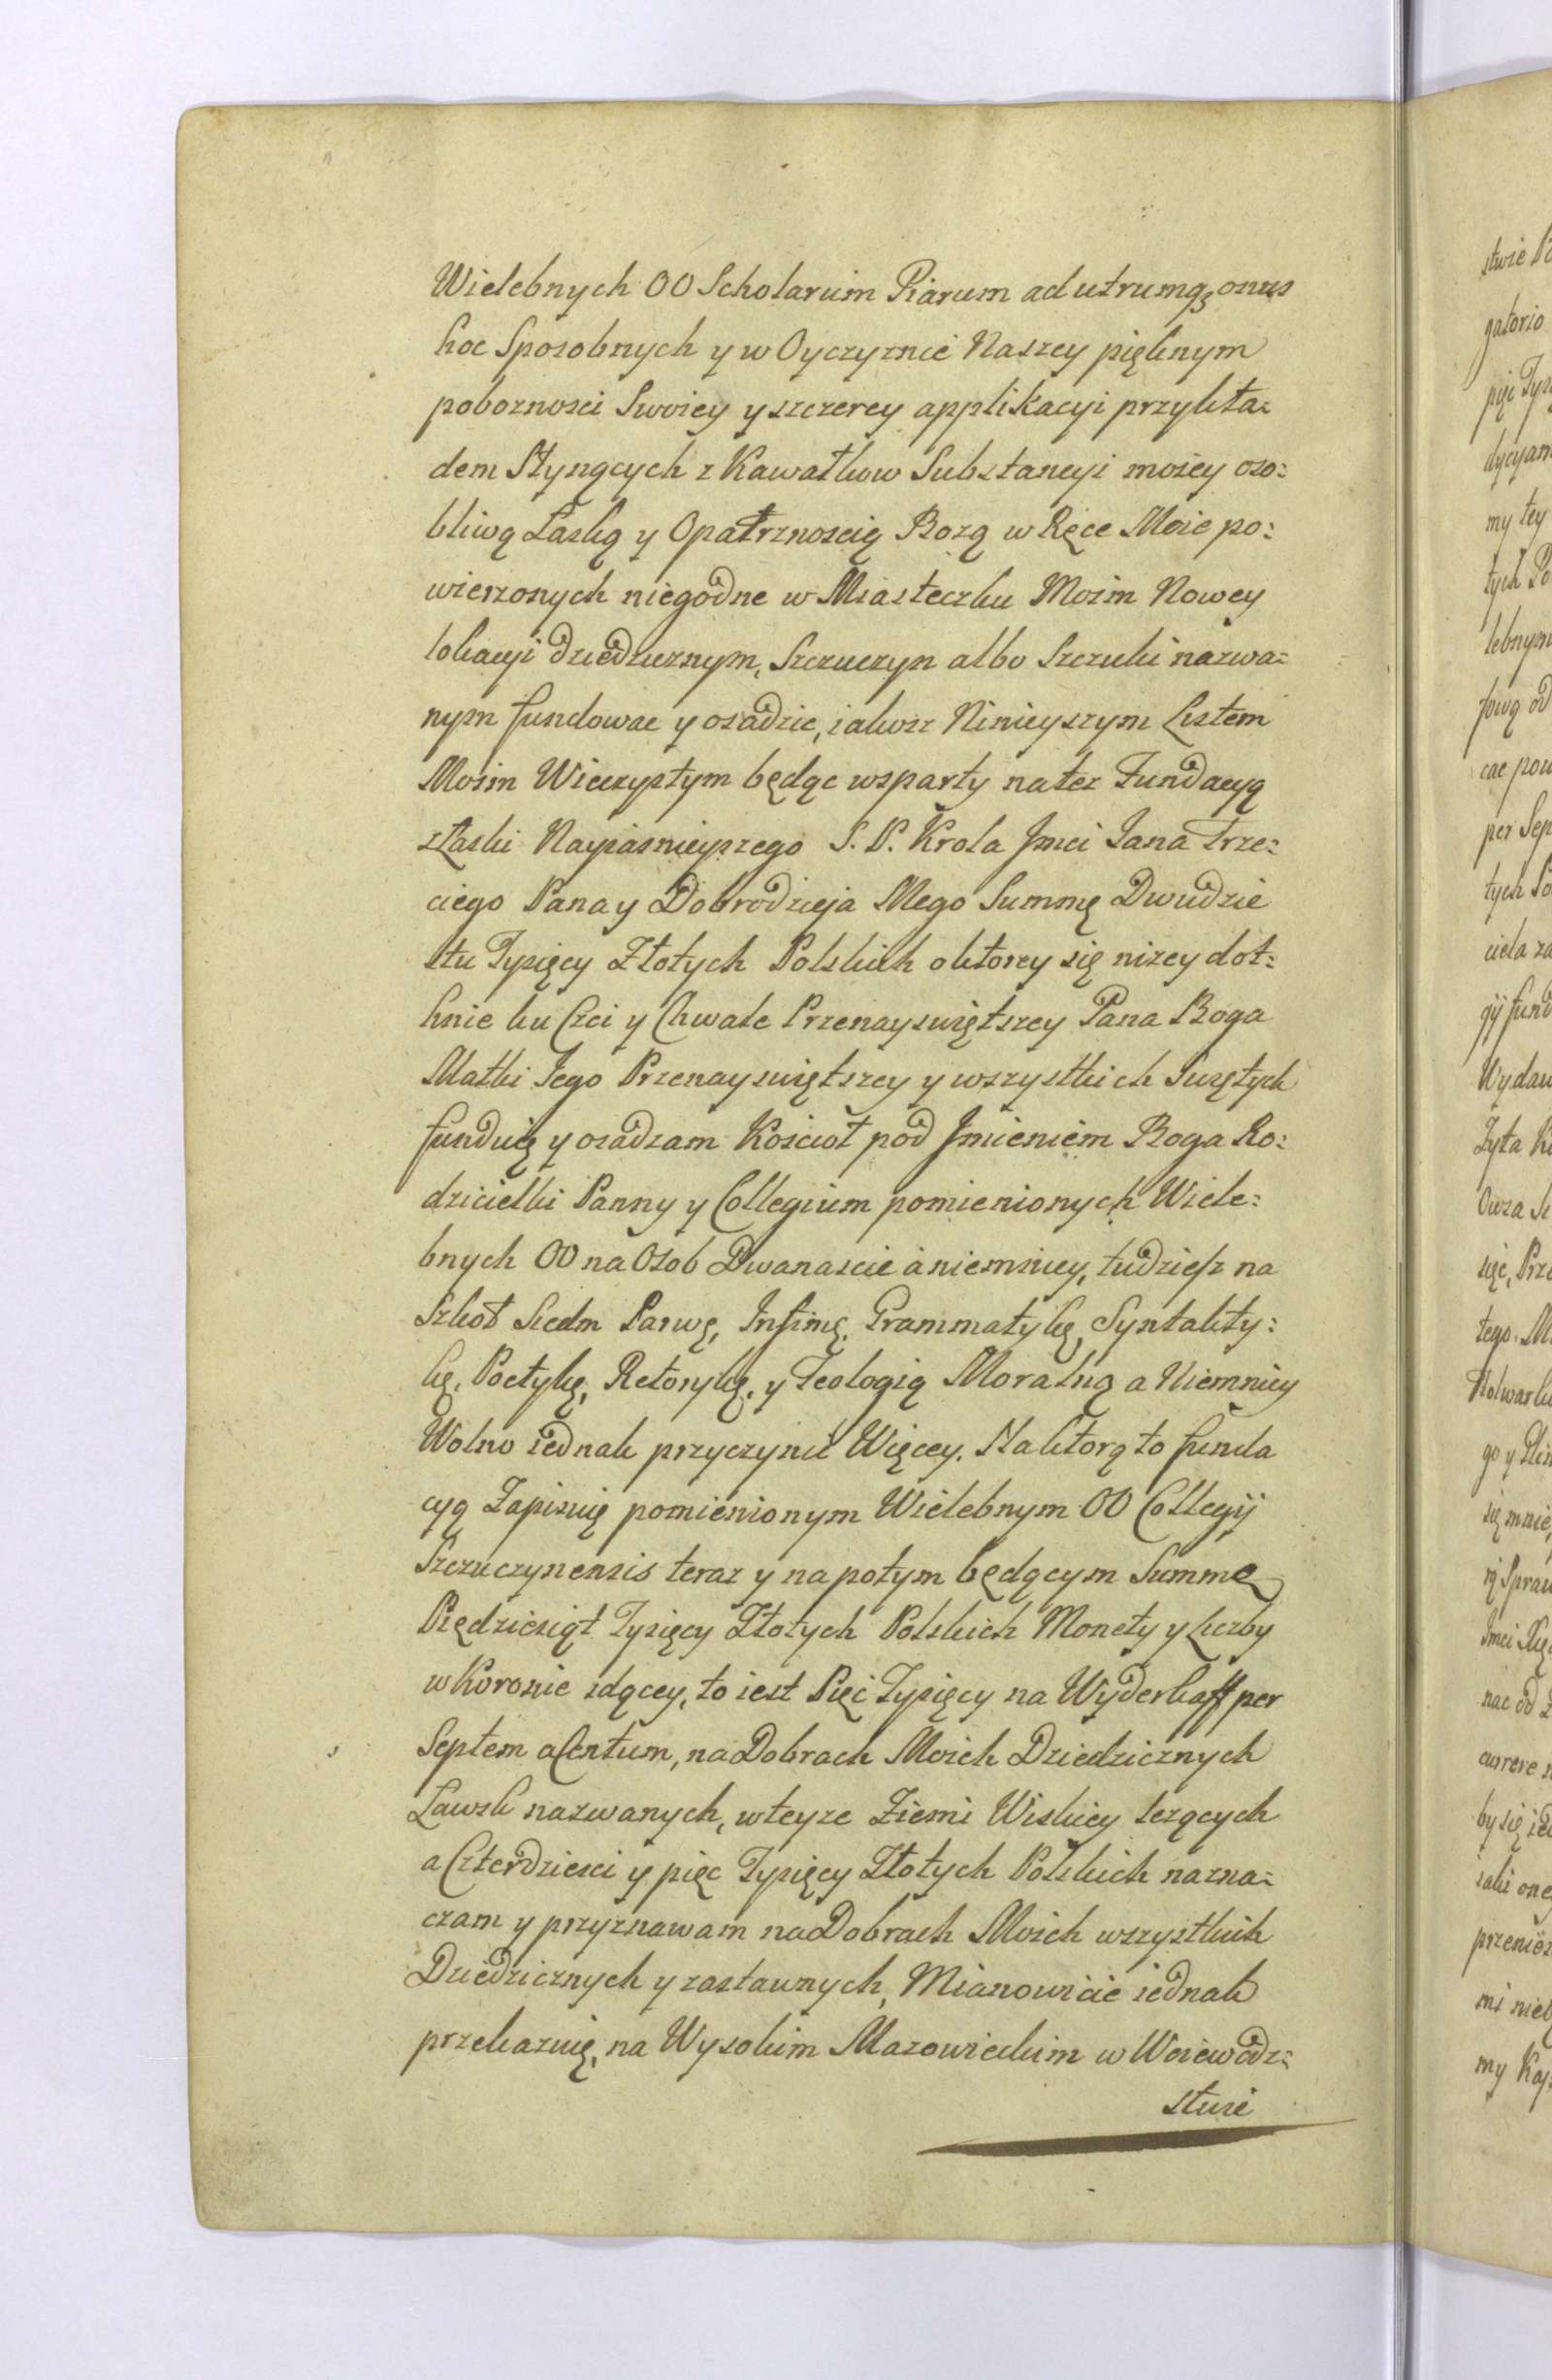 Wielebnych OO Scholarum Piarum ad utrumq3 onus
hoc Sposobnych y w Oyczyznie Naszey pięknym
poboznosci Swoiey y szczerey applikacyi przykła=
dem Słynących z Kawałkow Substancyi moiey oso=
bliwą Łaską y Opatrznoscią Bozą w Ręce Moie po=
wierzonych niegodne w Miasteczku Moim Nowey
lokacyi dziedzicznym, Szczuczyn albo Szczuki nazwa=
nym fundowac y osadzic, iakosz Ninieyszym Listem
Moim Wieczystym będąc wsparty na tez Fundacyą
z Łaski Nayiasnieyszego S. P. Krola Jmci Jana Trze=
ciego Pana y Dobrodzieja Mego Summę Dwudzie
stu Tysięcy Złotych Polskich o ktorey się nizey dot=
knie ku Czci y Chwale Przenayswiętszey Pana Boga
Matki Jego Przenayswiętszey y wszystkich Swętych
funduię y osadzam Kościoł pod Jmieniem Boga Ro=
dzicielki Panny y Collegium pomienionych Wiele=
bnych OO na Osob Dwanascie a niemniey, tudziesz na
Szkoł Siedm Parwę, Infimę, Grammatykę, Syntakty=
kę, Poetykę, Retorykę, y Teologią Moralną a Niemniey
Wolno iednak przyczynić Więcey. Na ktorą to funda
cyą Zapisuię pomienionym Wielebnym OO Collegij
Szczuczynensis teraz y na potym będącym Summę
Piędziesiąt Tysięcy Złotych Polskich Monety y Liczby
w Koronie idącey, to iest Pięć Tysięcy na Wyderkaff per
Septem a Centum, na Dobrach Moich Dziedzicznych
Ławsk nazwanych, w teyze Ziemi Wiskiey lezących
a Czterdziesci y pięc Tysięcy Złotych Polskich nazna=
czam y przyznawam na Dobrach Moich wszystkich
Dziedzicznych y zastawnych, Mianowicie iednak
przekazuię, na Wysokim Mazowieckim w Woiewodz=
stwie
stwie
gatorio
pięć
my tey
tych
lebnym
cac
per Sep
tych
ciela
gij fund
Wydan
Zyta
Owza
się, Prze
tego. M
Folwark
go y
się mnie,
Jmci
nac od
currere
by się
iako one
przenies
mi nieb
my